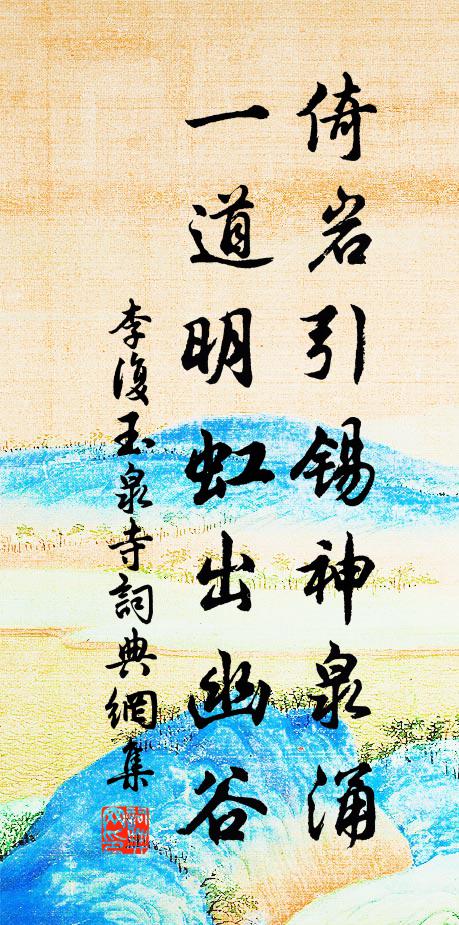 倚岩引錫神泉涌
一道明虹出幽谷
李復玉泉寺詞典網集